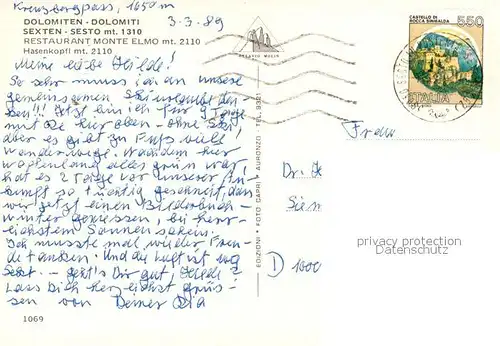 Kreuzbergpass, 1650 m
3-3-89
DOLOMITEN - DOLOMITI
SEXTEN - SESTO mt. 1310
RESTAURANT MONTE ELMO mt. 2110
Hasenkopfl mt. 2110
Meine liebe Hilde!
So sehr muss ich an unsere
gemeinsamen Skiurlaube den-
ken!! Jetzt bin ich für 9 Tage
mit hier oben - ohne Ski,
aber es gibt zu Fuss viele
Wanderwege. Nachdem hier
alles grün war,
hat es 2 Tage vor unserer An-
kunft so tüchtig geschneit, dass
wir jetzt einen Bilderbuch-
winter geniessen, bei herr-
lichstem Sonnenschein.
Ich musste mal wieder Freu-
de tanken. Und die Luft ist
Sekt. - geht's Dir gut, Hilde?
Lass Dich herzlichst grüs-
sen von Deiner
1069
EDIZIONI • FOTO CAPRI • AURONZO • TEL.
CASTELLO DI
ROCCA SINIBALDA
550
ITALIA
Frau
Dr.
Siem
D
privacy protection
Datenschutz